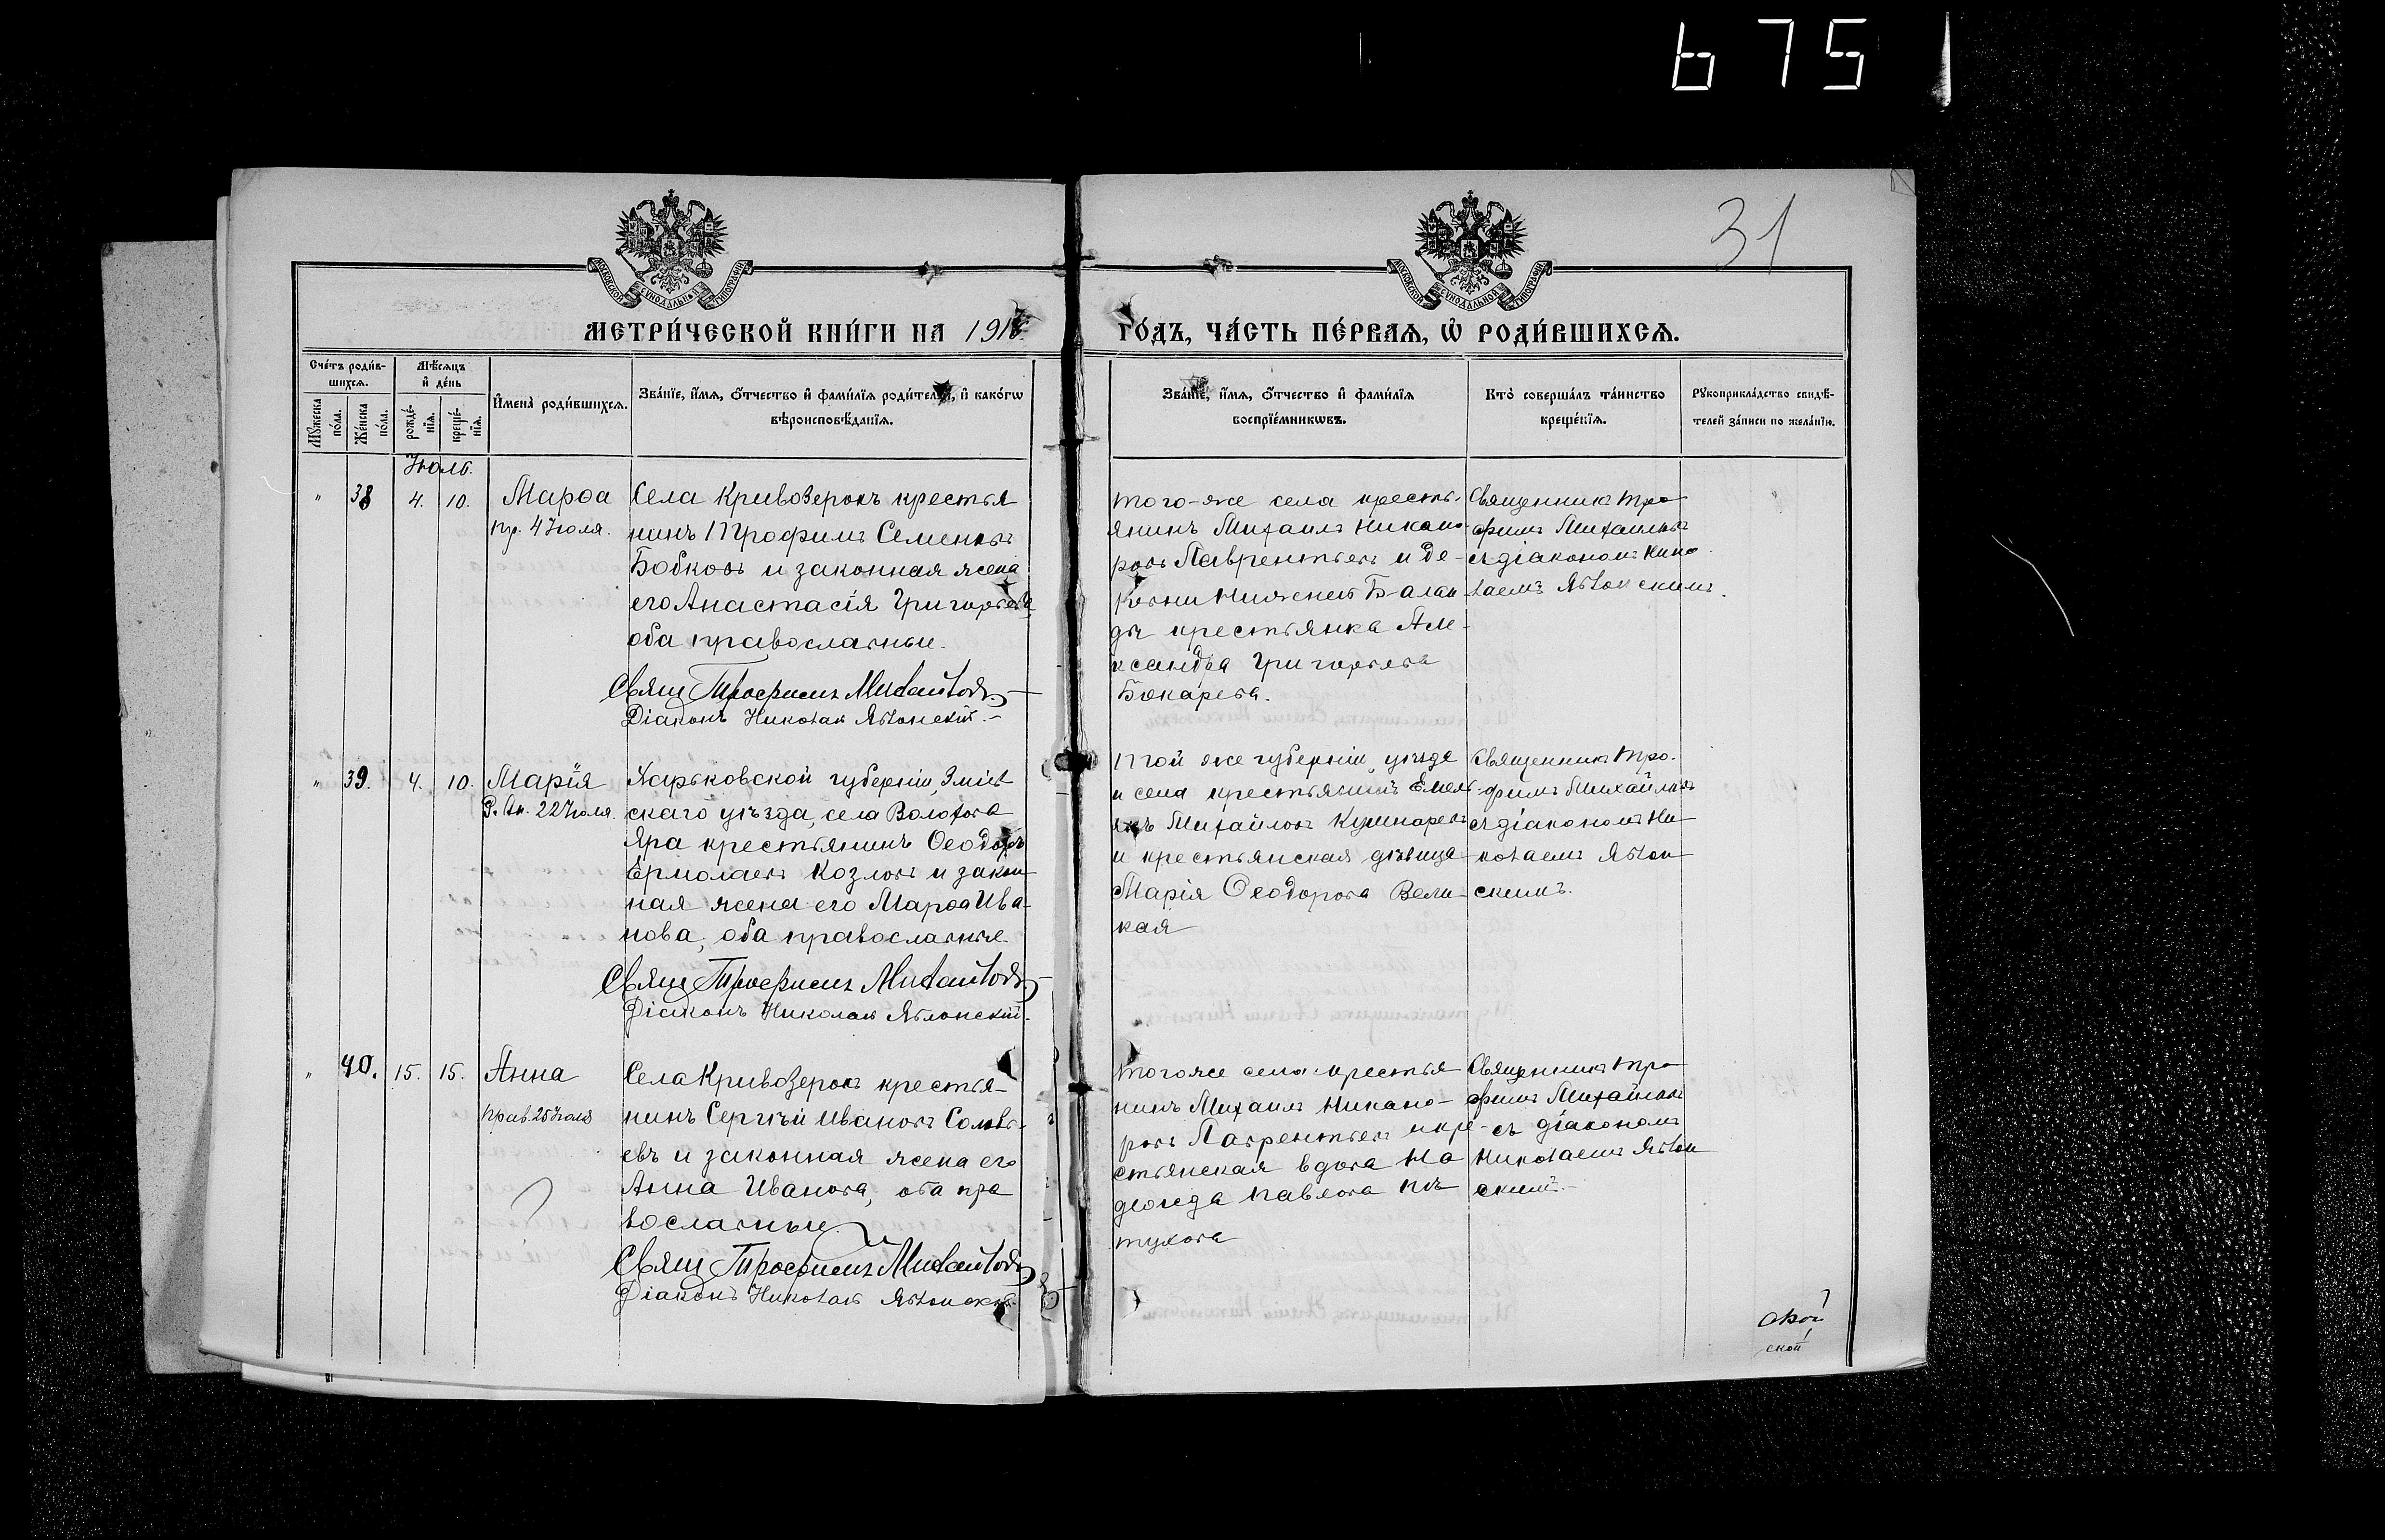 675
31
МОСКОВСКОЙ СѴНОДАЛЬНОЙ ТИПОГРАФІИ
МОСКОВСКОЙ СѴНОДАЛЬНОЙ ТИПОГРАФІИ
МЕТРИ́ЧЕСКОЙ КНИ́ГИ НА 191
ГО́ДЪ, ЧА́СТЬ ПЕ́РВАѦ, Ѡ҆ РОДИ́ВШИХСѦ.
Счётъ роди́в-
шихсѧ.
Мѣсѧцъ
и҆ де́нь
Мꙋжеска по́ла.
Же́нска по́ла.
рожде́-
нїѧ.
креще́-
нїѧ.
И҆мена̀ роди́вшихсѧ.
Зва́нїе, и҆́мѧ, ѻ҆́тчество и҆ фами́лїѧ роди́телей, и҆ како́гѡ
вѣроисповѣ́данїѧ.
Зва́нїе, и҆́мѧ, ѻ҆́тчество и҆ фами́лїѧ
воспрїе́мникѡвъ.
Кто̀ соверша́лъ та́инство
креще́нїѧ.
Рꙋкоприкла́дство свидѣ́-
телей за́писи по жела́нїю.
Іюль.
" 38 4. 10. Марѳа
пр. 4 Іюля.
Села Кривозерокъ крестья
нинъ Трофимъ Семеновъ
Бобковъ и законная жена
его Анастасія Григорьева,
оба православные.
Свящ Трофимъ Михайловъ
Діаконъ Николай Яблонскій.
того-же села кресть-
янинъ Михаилъ Никано
ровъ Лаврентьевъ и де-
ревни Нижней Балан
ды крестьянка Але-
ксандра Григорьева
Бокарева.
Священникъ Тро
фимъ Михайловъ
съ діакономъ Нико
лаемъ Яблонскимъ.
" 39. 4. 10. Марія
22 Іюля.
Харьковской губерніи, Зміев
скаго уѣзда, села Волохова
Яра крестьянинъ Ѳеодоръ
Ермолаевъ Козловъ и закон
ная жена его Марѳа Ива-
нова, оба православные.
Свящ Трофимъ Михайловъ
Діаконъ Николай Яблонскій.
Той же губерніи, уѣзда
и села крестьянинъ Емель
янъ Михайловъ Кушнаревъ
и крестьянская дѣвица
Марія Ѳеодорова Вели-
кая
Священникъ Тро-
фимъ Михайловъ
съ діакономъ Ни
колаемъ Яблон
скимъ.
" 40. 15. 15. Анна
прав. 25 Іюля
Села Кривозерокъ крестья-
нинъ Сергѣй Ивановъ Соловь-
евъ и законная жена его
Анна Иванова, оба пра
вославные
Свящ Трофимъ Михайловъ
Діаконъ Николай Яблонскій.
того же села крестья
нинъ Михаилъ Никано-
ровъ Лаврентьевъ и кре-
стьянская вдова На
дежда Павлова Пѣ
тухова
Священникъ Тро
фимъ Михайловъ
съ діакономъ
Николаемъ Яблон
скимъ.
ской